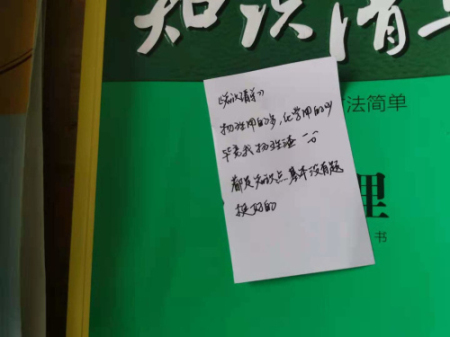 知识清单
《知识清单》
法简单
物理用的多，化学用的少
毕竟我物理渣
都是知识点基本没有题
理
书
挺好的